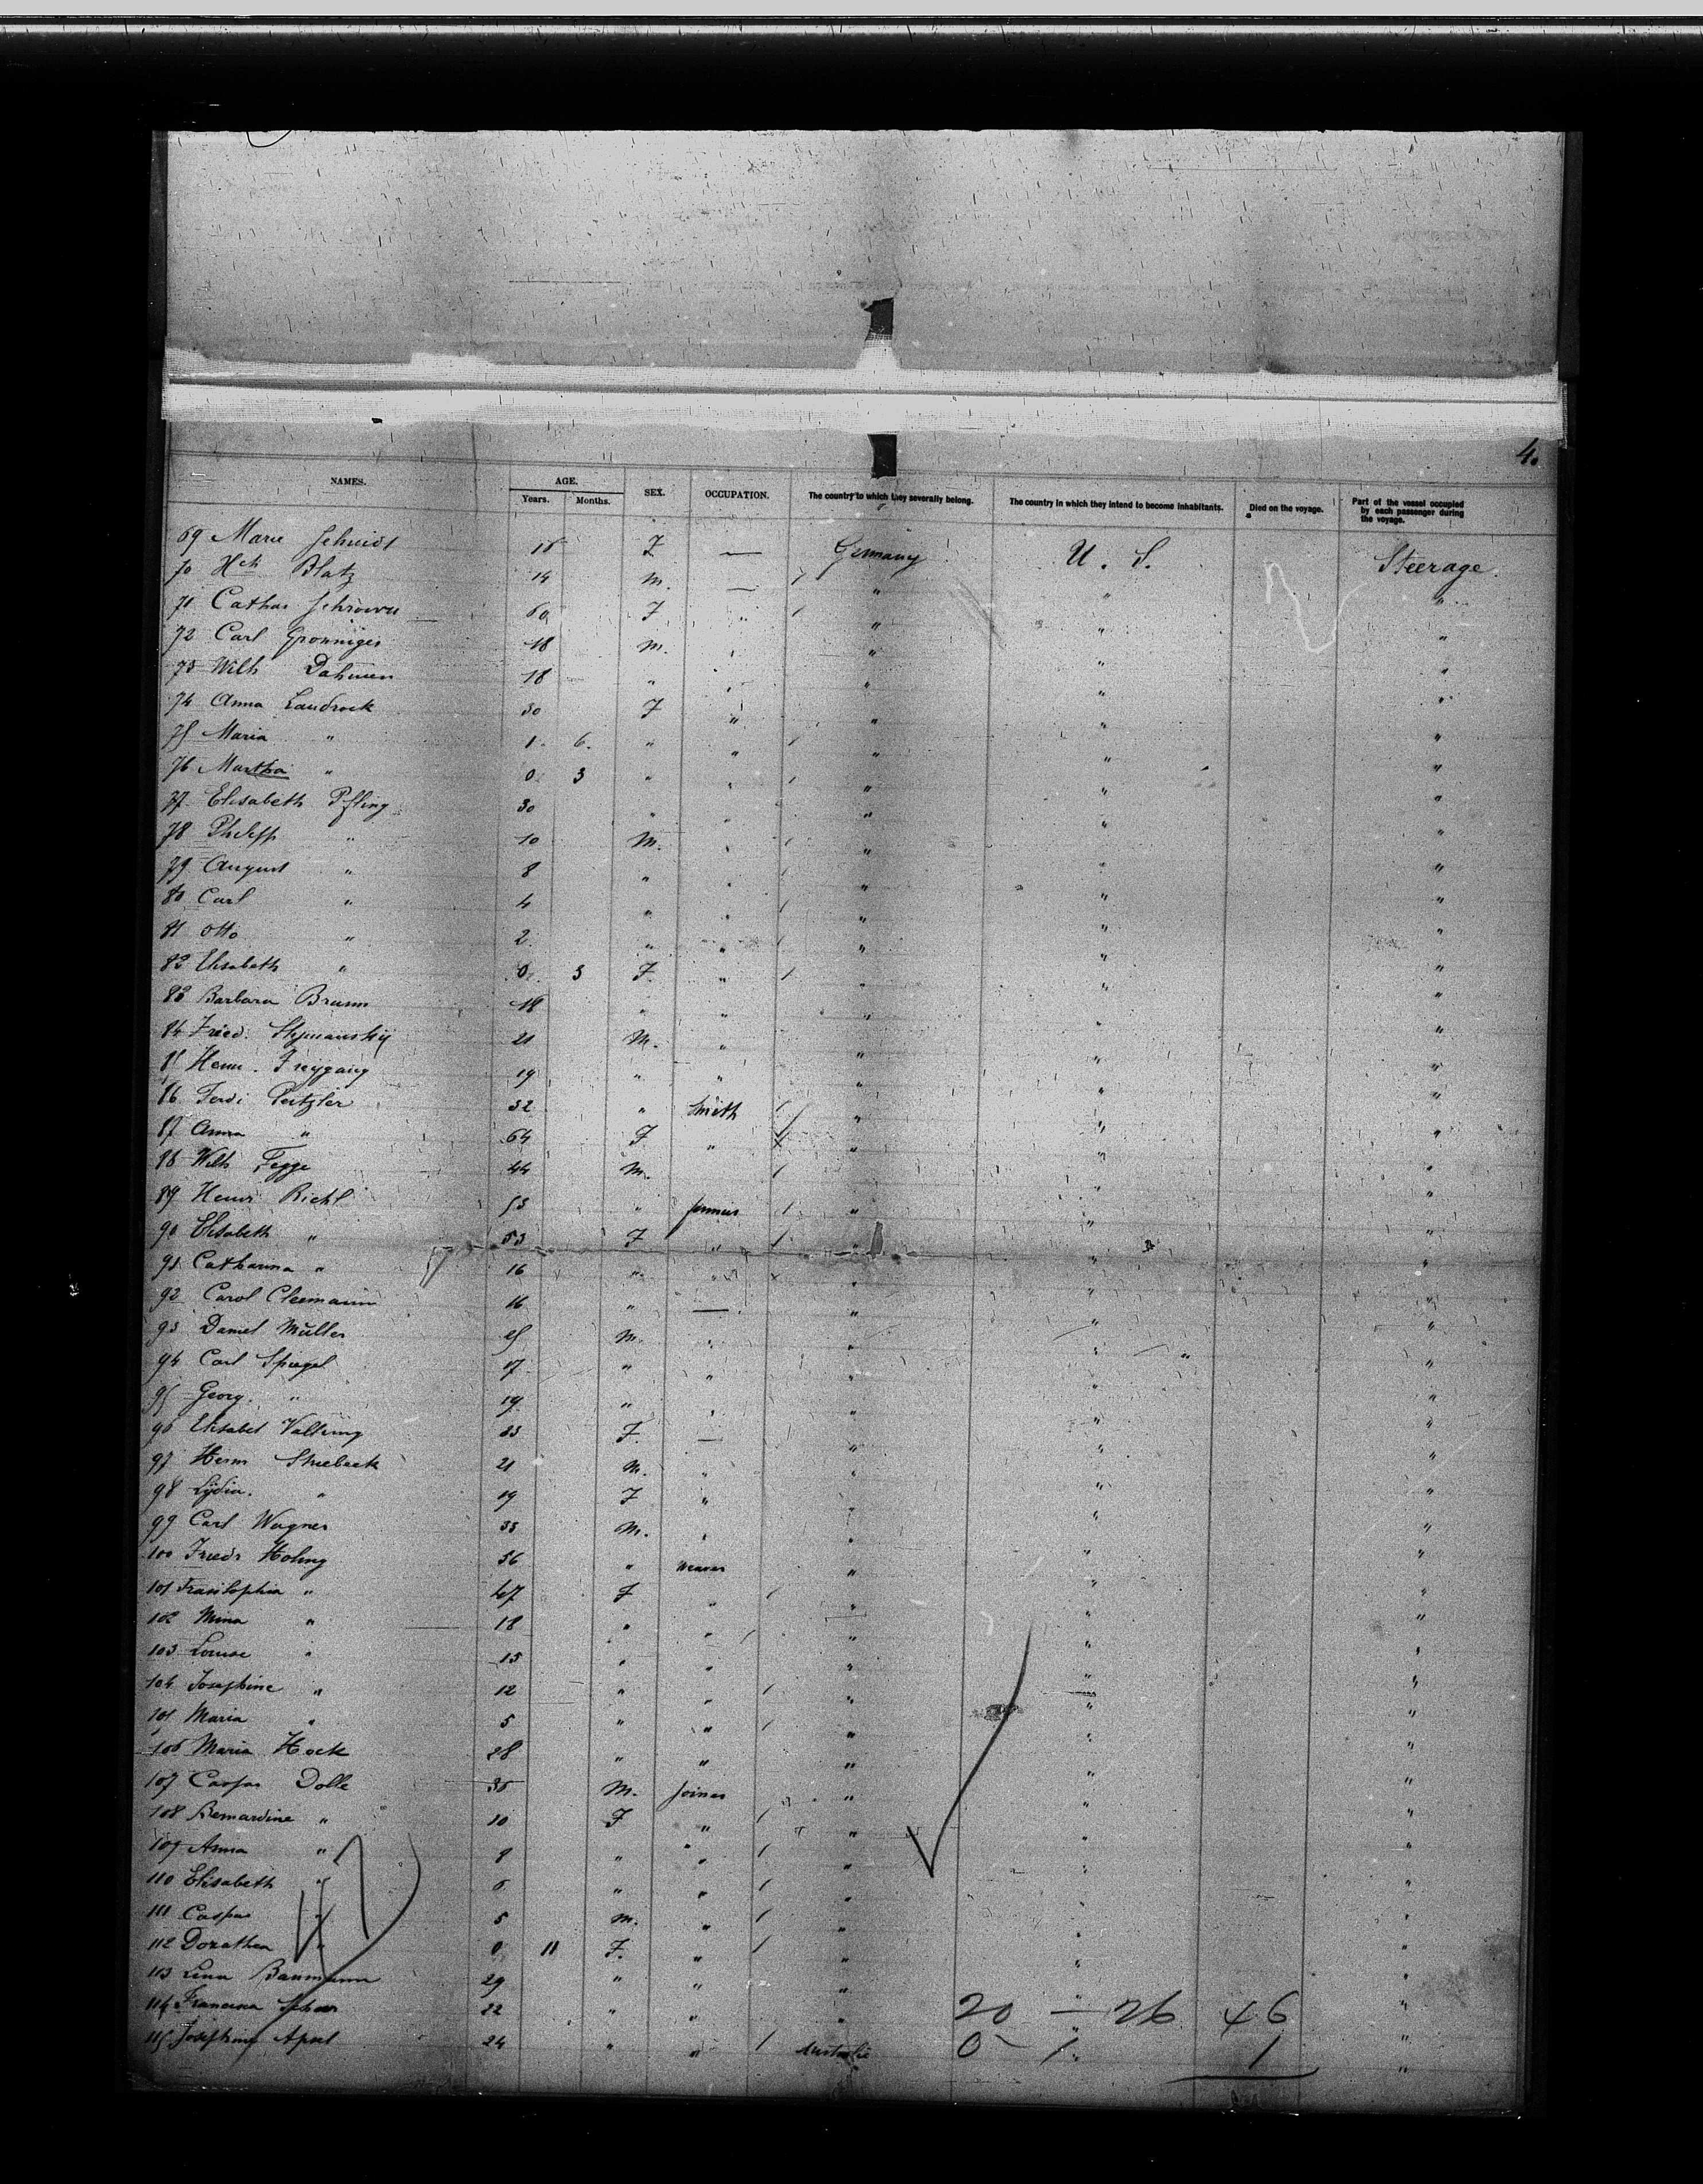 4.
NAMES. AGE. Years. Months. SEX. OCCUPATION. The country to which they severally belong. The country in which they intend to become inhabitants. Died on the voyage. Part of the vessel occupied by each passenger during the voyage.
69 Marie F — Germany U. S. Steerage.
70 Hch Blatz 14 M. — " " "
71 F " " " "
72 Carl 18 M. " " " "
73 Wilh Dahmen 18 " " " " "
74 Anna Landrock 30 F " " " "
75 Maria " 1. 6. " " " " "
76 Martha " 0 3 " " " " "
77 Elisabeth Pfling 30 " " " " "
78 Philipp " 10 M. " " " "
79 August " 8 " " " " "
80 Carl " 4 " " " " "
81 Otto " 2. " " " " "
82 Elisabeth " 0 3 F. " " " "
83 Barbara Brumm 18 " " " " "
84 Fried. 21 M. " " " "
85 Herm. Freygang 19 " " " " "
86 Ferdi 32 " Smith " " "
87 Anna " 64 F " " " "
88 Wilh Fegge 44 M. " " "
89 Henri Richl 53 " " " "
90 Elisabeth " 53 F " " " "
91 Catharina " 16 " " " " "
92 Carol Cleemann 16 " — " " "
93 Daniel Müller 25 M. " " " "
94 Carl Spiegel 17 " " " " "
95 Georg. " 19 " " " " "
96 Elisabet 33 F. — " " "
97 Herm 21 M. " " " "
98 Lydia. " 19 F " " " "
99 Carl Wagner 33 M. " " " "
100 Friedr Hohng 56 " weaver " " "
101 " 47 F " " " "
102 Mina " 18 " " " " "
103 Louise " 15 " " " " "
104 Josephine " 12 " " " " "
105 Maria " 5 " " " " "
106 Maria Hock 28 " " " " "
107 Caspar Dolle M. Joiner " " "
108 Bernardine " 10 F " " " "
109 Anna " 8 " " " " "
110 Elisabeth " 6 " " " " "
111 Caspar " 5 M. " " " "
112 Dorathea " 0 11 F. " " " "
113 Lena Baumann 29 " " " " "
114 22 " " " " "
115 Josephine Apsel 24 " " " "
20 — 26 46
0 - 1 1